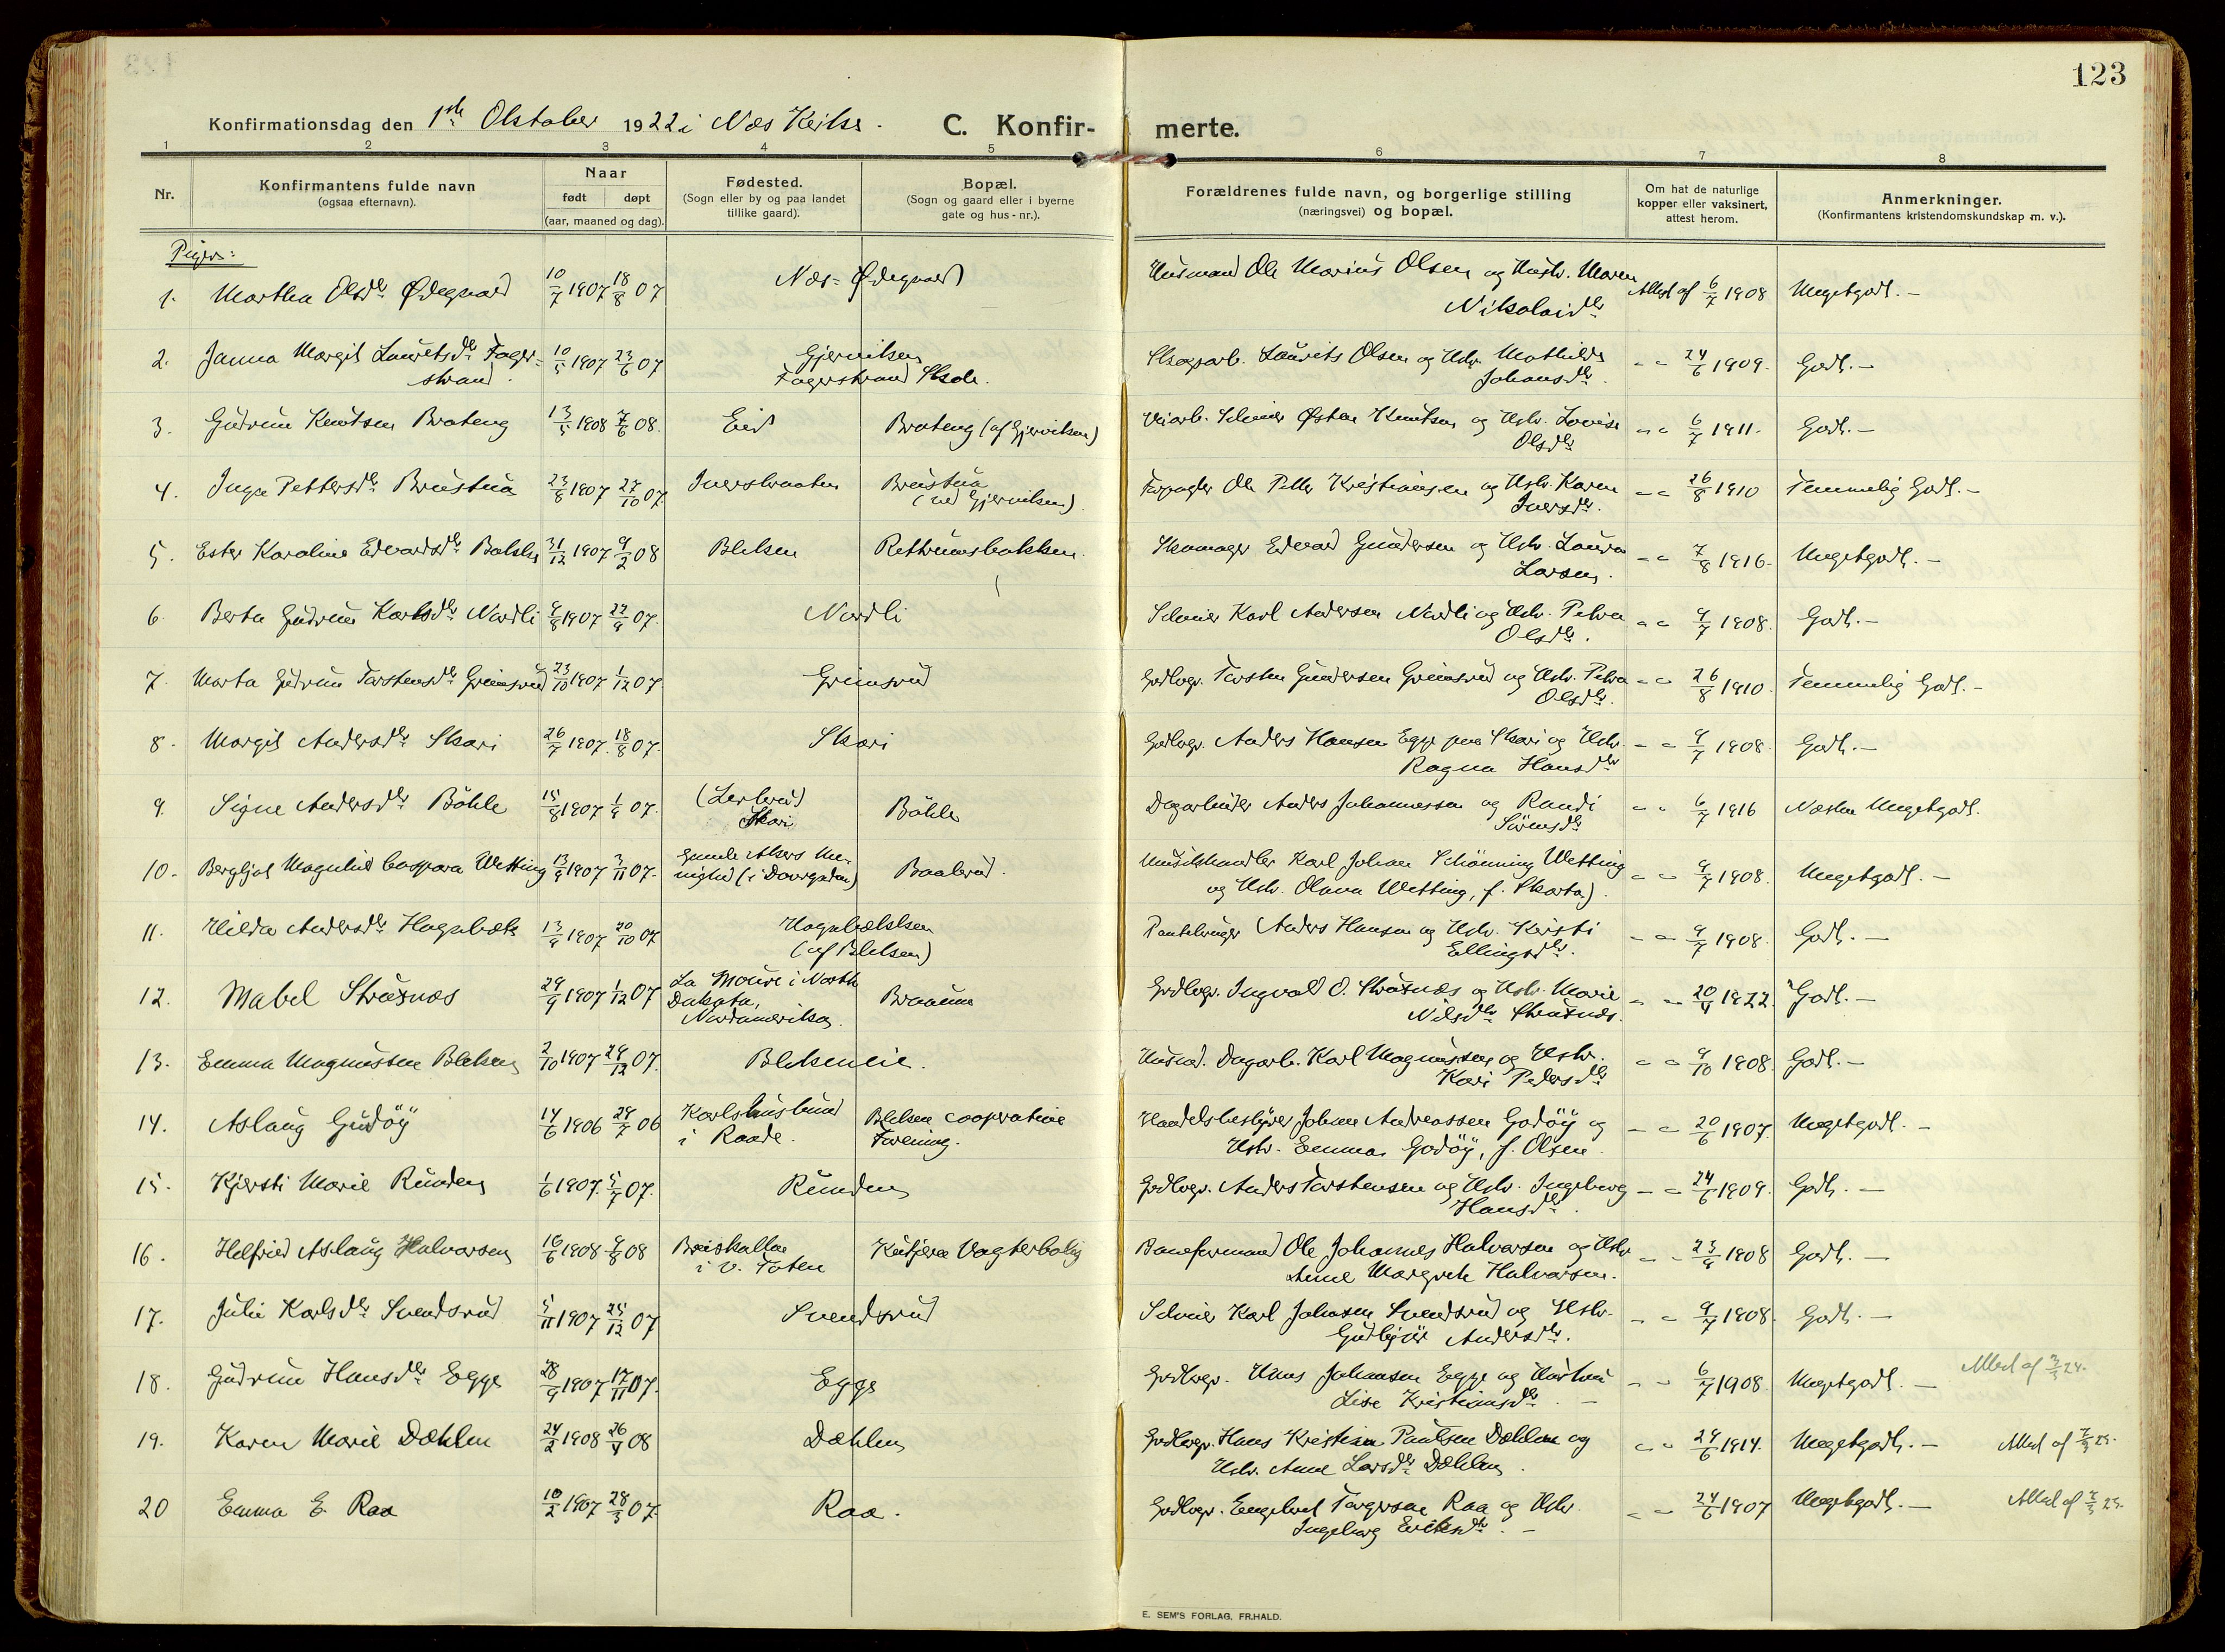 123
Konfirmationsdag den 1ste Oktober 1922 i Næs Kirke.
C. Konfirmerte.
1 2 3 4 5 6 7 8
Nr.
Konfirmantens fulde navn
(ogsaa efternavn).
Naar
født døpt
(aar, maaned og dag).
Fødested.
(Sogn eller by og paa landet
tillike gaard).
Bopæl.
(Sogn og gaard eller i byerne
gate og hus-nr.).
Forældrenes fulde navn, og borgerlige stilling
(næringsvei) og bopæl.
Om hat de naturlige
kopper eller vaksinert,
attest herom.
Anmerkninger.
(Konfirmantens kristendomskundskap m. v.).
Piger:
1. Martha Olsdtr Ødegaard 10/7 1907 18/8 07 Næs-Ødegaard Husmand Ole Marius Olsen og Hustr. Maren
Nikolaidtr Attest af 6/7 1908 Megetgodt.-
2. Janna Margit Lauritsdtr Fager-
strand. 10/5 1907 23/6 07 Gjerviken
Fagerstrand Skole. Skogarb. Laurits Olsen og Hstr. Mathilde
Johansdtr. - - 24/6 1909. Godt.-
3. Gudrun Knutsen Brateng 13/5 1908 7/6 08. Eid Brateng (af Gjerviken) Veiarb. Selveier Østen Knutsen og Hstr. Lovise
Olsdtr - - 6/7 1911. Godt.-
4. Inga Pettersdtr Brustua 23/8 1907 27/10 07. Brustua
(ved Gjerviken). Ole Petter Kristiansen og Hstr. Karen
Iversdtr. - - 26/8 1910 Temmelig Godt.-
5. Ester Karoline Edvardsdtr 31/12 1907 9/2 08 Bleken Skomager Edvard Gundersen og Hstr. Laura
Larsen. - - 7/8 1916. Megetgodt.-
6. Berta Gudrun Karlsdtr Nordli 4/8 1907 22/9 07. Nordli Selveier Karl Andersen Nordli og Hstr. Petra
Olsdtr. - - 9/7 1908. Godt.-
7. Marta Gudrun Torstensdtr Grimsrud 23/10 1907 1/12 07. Grimsrud Grdbrgr. Torsten Gundersen Grimsrud og Hstr. Petra
Olsdtr. - - 26/8 1910. Temmelig Godt.-
8. Margit Andersdtr Skari 26/7 1907. 18/8 07. Skari Grdbrgr. Anders Hansen Egge paa Skari og Hstr.
Ragna Hansdtr - - 9/7 1908. Godt.-
9. Signe Andersdtr Böhle 15/8 1907 1/9 07.
Skari Böhle Dagarbeider Anders Johannessen og Randi
Sörensdtr - - 6/7 1916 Næsten Megetgodt.
10. Bergljot Magnhild Caspara Wetting 13/9 1907 3/11 07. Gamle Akers Me-
nighed Baalerud. Musikhandler Karl Johan Schönning Wetting
og Hstr. Olava Wetting, f. Skarta). - - 9/7 1908. Megetgodt.-
11. Hilda Andersdtr Hagabæk 13/9 1907 20/10 07 Hagabækken
(af Bleken) Anders Hansen og Hstr. Kristi
Ellingsdtr. - - 9/7 1908. Godt.-
12. Mabel Straxnæs 29/9 1907 1/12 07 La Moure i North
Dakota,
Nordamerika. Braaume Grdbrgr. Ingvald O. Straxnæs og Hstr. Marie
Nilsdtr Straxnæs. - - 20/4 1922. Godt.-
13. Emma Magnussen Bleken 2/10 1907 29/12 07. Blekeneie. Husmd. Dagarb. Karl Magnussen og Hstr.
Kari Pedersdtr - - 9/10 1908. Godt.-
14. Aslaug Gudöy 14/6 1906 29/7 06 Karlshuslund
i Raade. Bleken cooperative
Forening. Handelsbestyrer Johan Andreassen Godöy og
Hstr. Emma Godöy, f. Olsen. - - 20/6 1907. Megetgodt.-
15. Kjersti Marie Runden 1/6 1907. 5/7 07. Runden Grdbrgr. Anders Torstensen og Hstr. Ingeborg
Hansdtr. - - 24/6 1909. Godt.-
16. Helfrid Aslaug Halvorsen 16/6 1908 9/8 08 Breiskallen
i V. Toten Kutjern Vogterbolig Baneformand Ole Johannes Halvorsen og Hstr
Anne Margrete Halvorsen. - - 23/9 1908 Godt.-
17. Julie Karlsdtr Svendsrud 5/11 1907 25/12 07 Svendsrud Selveier Karl Johansen Svendsrud og Hstr.
Gudbjör Andersdtr. - - 9/7 1908. Godt.-
18. Gudrun Hansdtr Egge 28/9 1907 17/11 07. Egge Grdbrgr. Hans Johansen Egge og Hustru
Lise Kristiansdtr. - - - 6/7 1908. Megetgodt.- Attest af
19. Karen Marie Dæhlen 24/2 1908 26/4 08 Dæhlen Grdbrgr. Hans Kristian Paulsen Dæhlen og
Hstr. Anne Larsdtr Dæhlen. - - 24/6 1914. Megetgodt.- Attest af
20 Emma E. Raa 10/2 1907 28/3 07. Raa. Grdbrgr. Engebret Torgersen Raa og Hstr.
Ingeborg Eriksdtr. - - - 24/6 1907 Megetgodt.- Attest af
E. SEM'S FORLAG, FR.HALD.